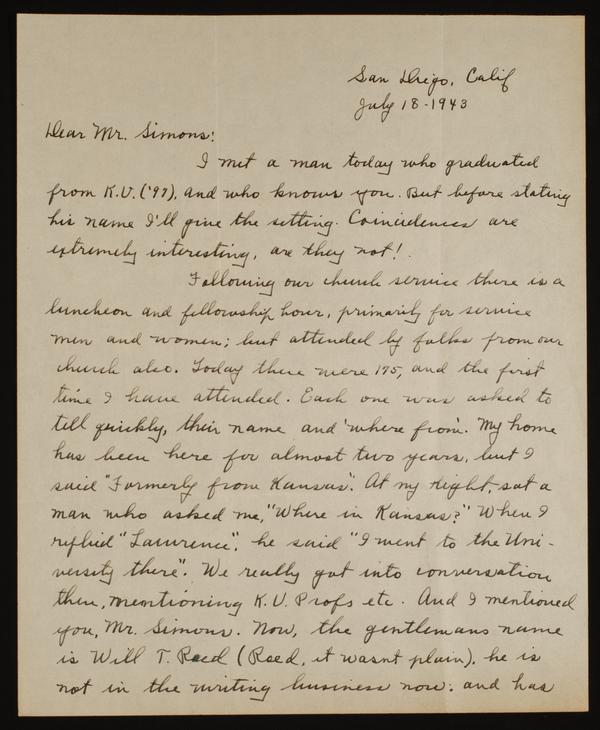 San Diego, Calif
July 18-1943
Dear Mr. Simons:
I met a man today who graduated
from K.U. ('97), and who knows you. But before stating
his name I'll give the setting. Coincidences are
extremely interesting, are they not!
Following our church service there is a
luncheon and fellowship hour, primarily for service
men and women; but attended by folks from our
church also. Today there were 175, and the first
time I have attended. Each one was asked to
tell quickly, their name and 'where from'. My home
has been here for almost two years, but I
said "Formerly from Kansas". At my right, sat a
man who asked me, "Where in Kansas?" When I
replied "Lawrence", he said "I went to the Uni-
versity there". We really got into conversation
then, mentioning K.U. Profs etc. And I mentioned
you, Mr. Simons. Now, the gentlemans name
is Will T. Reed (Reed, it wasnt plain), he is
not in the writing business now; and has